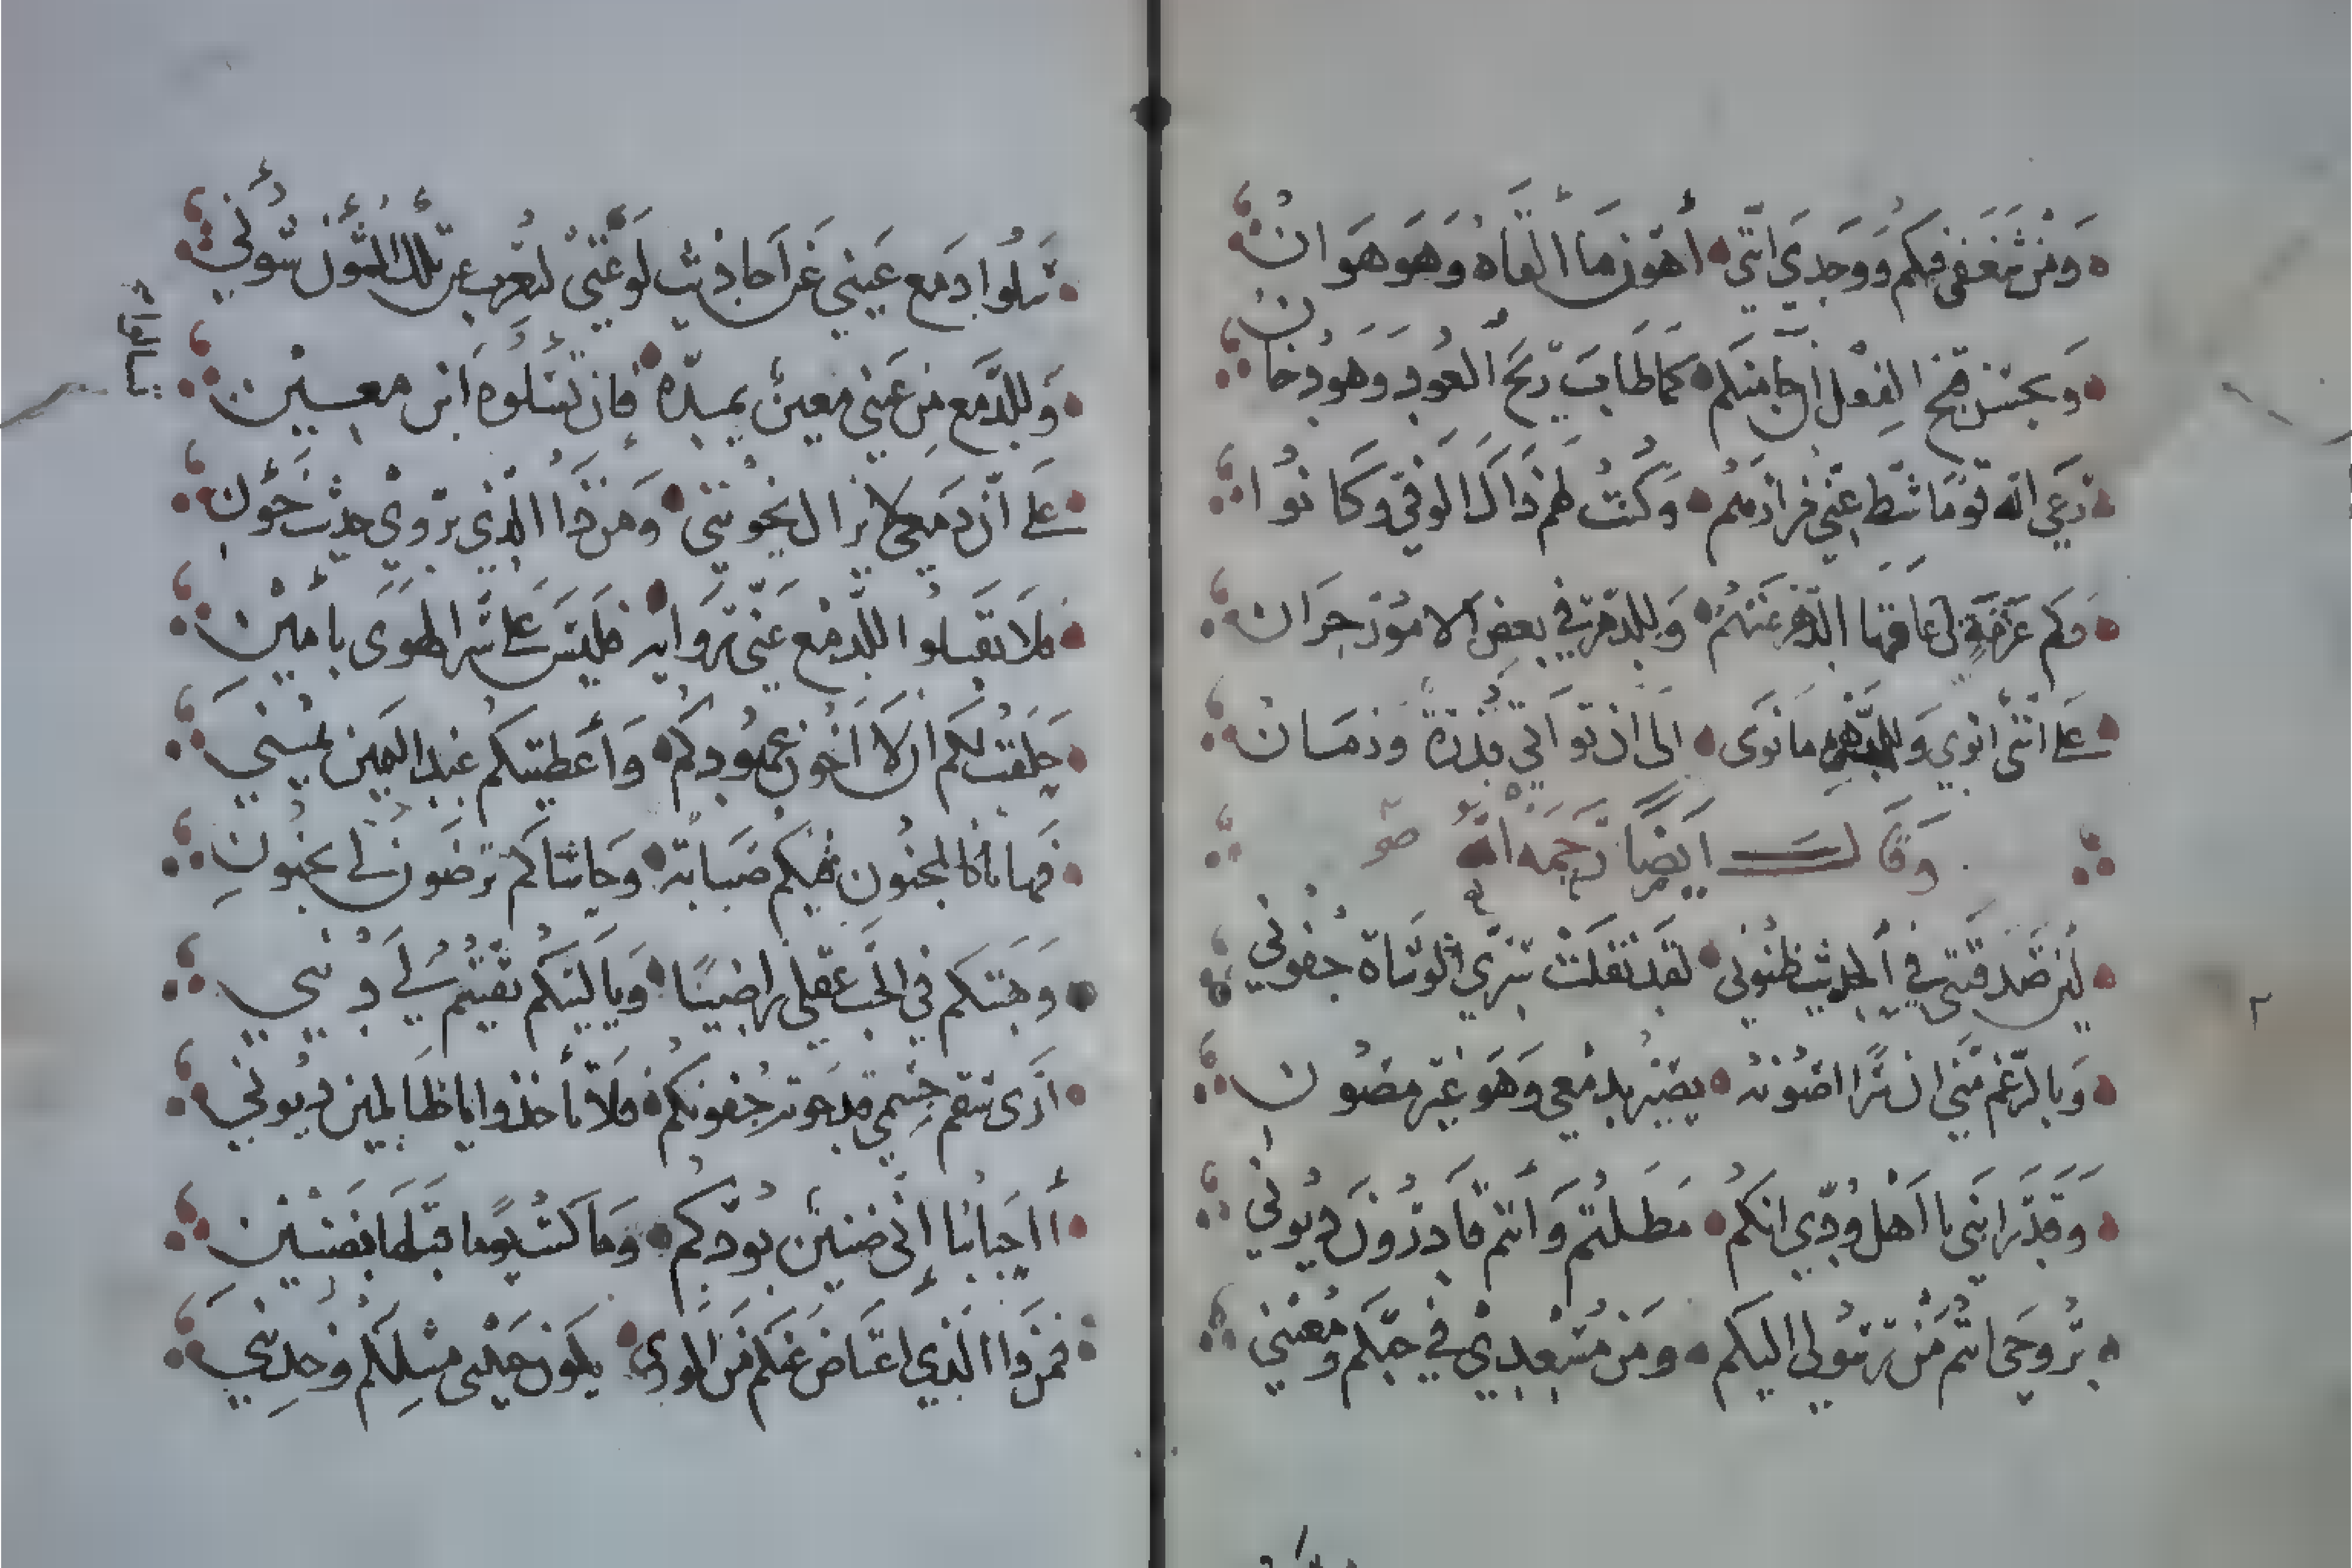 وَمِنْ شَغَفِي فيكم وَوَجدي انَّني أُهَوِّن ما القاهُ وهو هوانُ
وَيَحسُن قبح الفعل ان جا منكم كما طابَ ريحُ العُودِ وهو دخانُ
رَعى الله قومًا شطّ عني مزارهم وكنتُ لهم ذاك الوفيّ وكانوا
وكم عزمةٍ لي عاقها الدهر عنهم وللدهر في بعض الامور حران
على انني انوي وللدهر ما نوى الى ان تواتي قدرة وزمان
وقال ايضا رحمه الله
لئن صدقتني في الحديث ظنوني لقد نقلت سرّي الوشاة جفوني
وبالرغم منّي ان سرًّا اصونه يصير بدمعي وهو غير مصون
وقد رابني يا اهل ودّي انكم مطلتم وانتم قادرون ديوني
بروحي انتم من رسولي اليكم ومن مسعدي في حبكم ومعيني
سلوا دمع عيني عن احاديث لوعتي لتعرب عن تلك الشؤن شؤني
وللدمع من عيني معين يمدّه فان تسئلوه اين معين
على ان دمعي لا يزال يخونني ومن ذا الذي يروي حديث خؤن
فلا تقبلوا للدمع عني رواية فليس على سر الهوى بامين
حلفت لكم ان لا اخون عهودكم واعطيتكم عند اليمين يميني
فها انا كالمجنون فيكم صبابة وحاشاكم ترضون لي بجنون
وهبتكم في الحب عقلي راضيا ويا ليتكم بقيتم لي ديني
ارى سقم جسمي قد حوته جفونكم فلا تأخذوا يا ظالمين ديوني
أاحبابنا اني ضنين بودكم وما كنت يوما قبلها بضنين
فمن ذا الذي اعتاض عنكم من الورى يكون حبيبي مثلكم وخديني